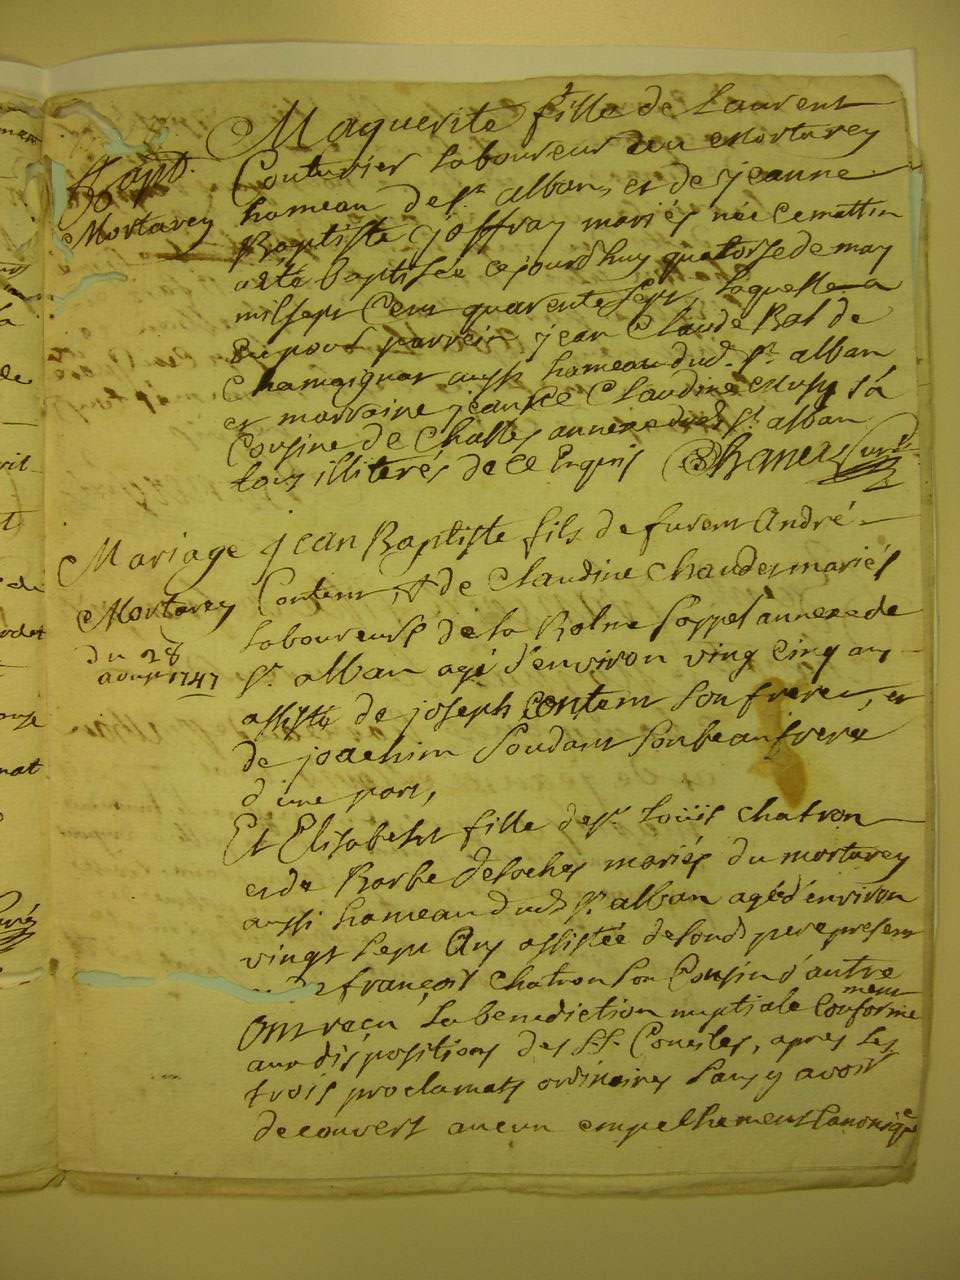 Bapt.
Mortarey
Maguerite fille de Laurent
Couturier laboureur du Mortarey
hameau de St alban, et de jeanne
Baptiste joffray mariés née ce mattin
a été baptisée ce jourd'huy quatorse de may
mil sept Cent quarente sept, laquelle a
eu pour parrein jean Claude Bal de
Chamagnar aussi hameau dud. St alban
et marraine jeanne Claudine sa
Cousine de Challes annexe dud St alban
tous illiterés de ce Enquis Curé
Mariage
Mortarey
du 28
aoust 1747
jean Baptiste fils de furent André
Contem, & de Claudine Chaudet mariés
laboureurs de la Balme Sappel annexe de
St. alban agé d'environ ving cinq ans
assisté de joseph Contem son frere, et
de joachim Soudant son beau frere
d'une part,
Et Elisabeht fille de Sr Loüis Chatron
et de Barbe Deloches mariés du mortarey
aussi hameau dud St. alban agé d'environ
vingt sept ans assistée de son d pere present
et de françois Chatron son Cousin d'autre
Ont reçu la benediction nuptiale Conformement
aux dispositions des SS. Conciles, apres les
trois proclamats ordinaires sans y avoir
decouvert aucun empechement Canonique